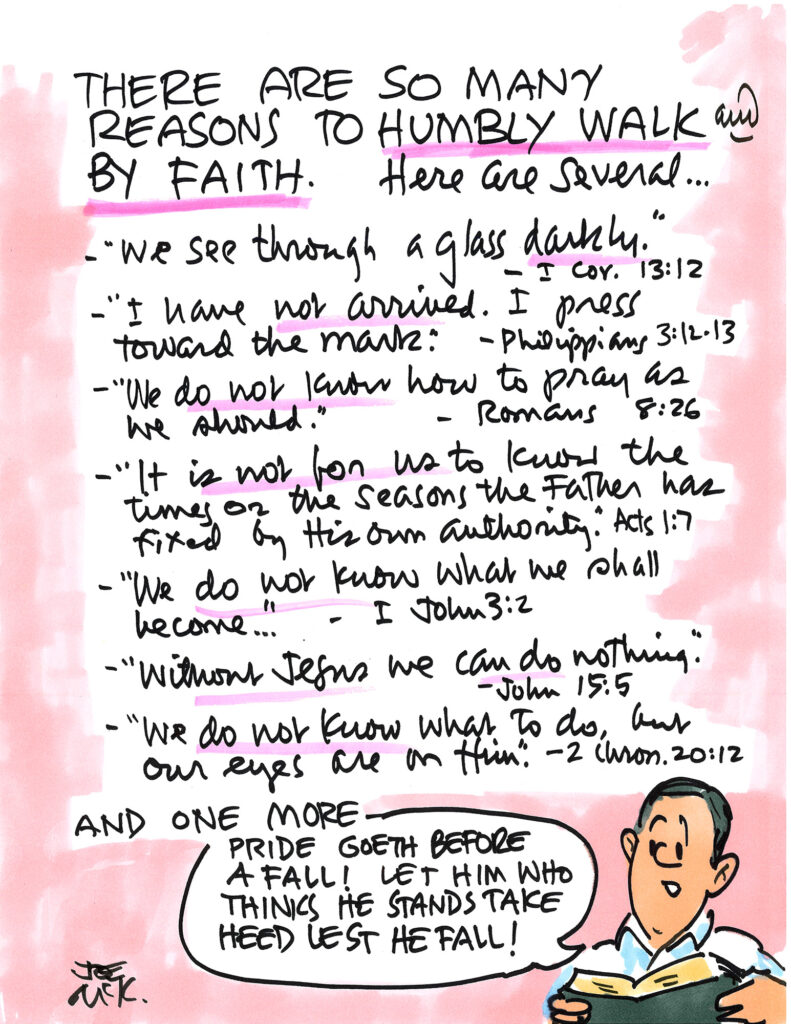 THERE ARE SO MANY
REASONS TO HUMBLY WALK and
BY FAITH. Here are several...
- "We see through a glass darkly."
- I Cor. 13:12
- "I have not arrived. I press
toward the mark." - Philippians 3:12-13
- "We do not know how to pray as
we should." - Romans 8:26
- "It is not for us to know the
times or the seasons the Father has
fixed by His own authority." Acts 1:7
- "We do not know what we shall
become..." - I John 3:2
- "Without Jesus we can do nothing."
- John 15:5
- "We do not know what to do, but
our eyes are on Him". - 2 Chron. 20:12
AND ONE MORE
PRIDE GOETH BEFORE
A FALL! LET HIM WHO
THINKS HE STANDS TAKE
HEED LEST HE FALL!
JOE
McK.